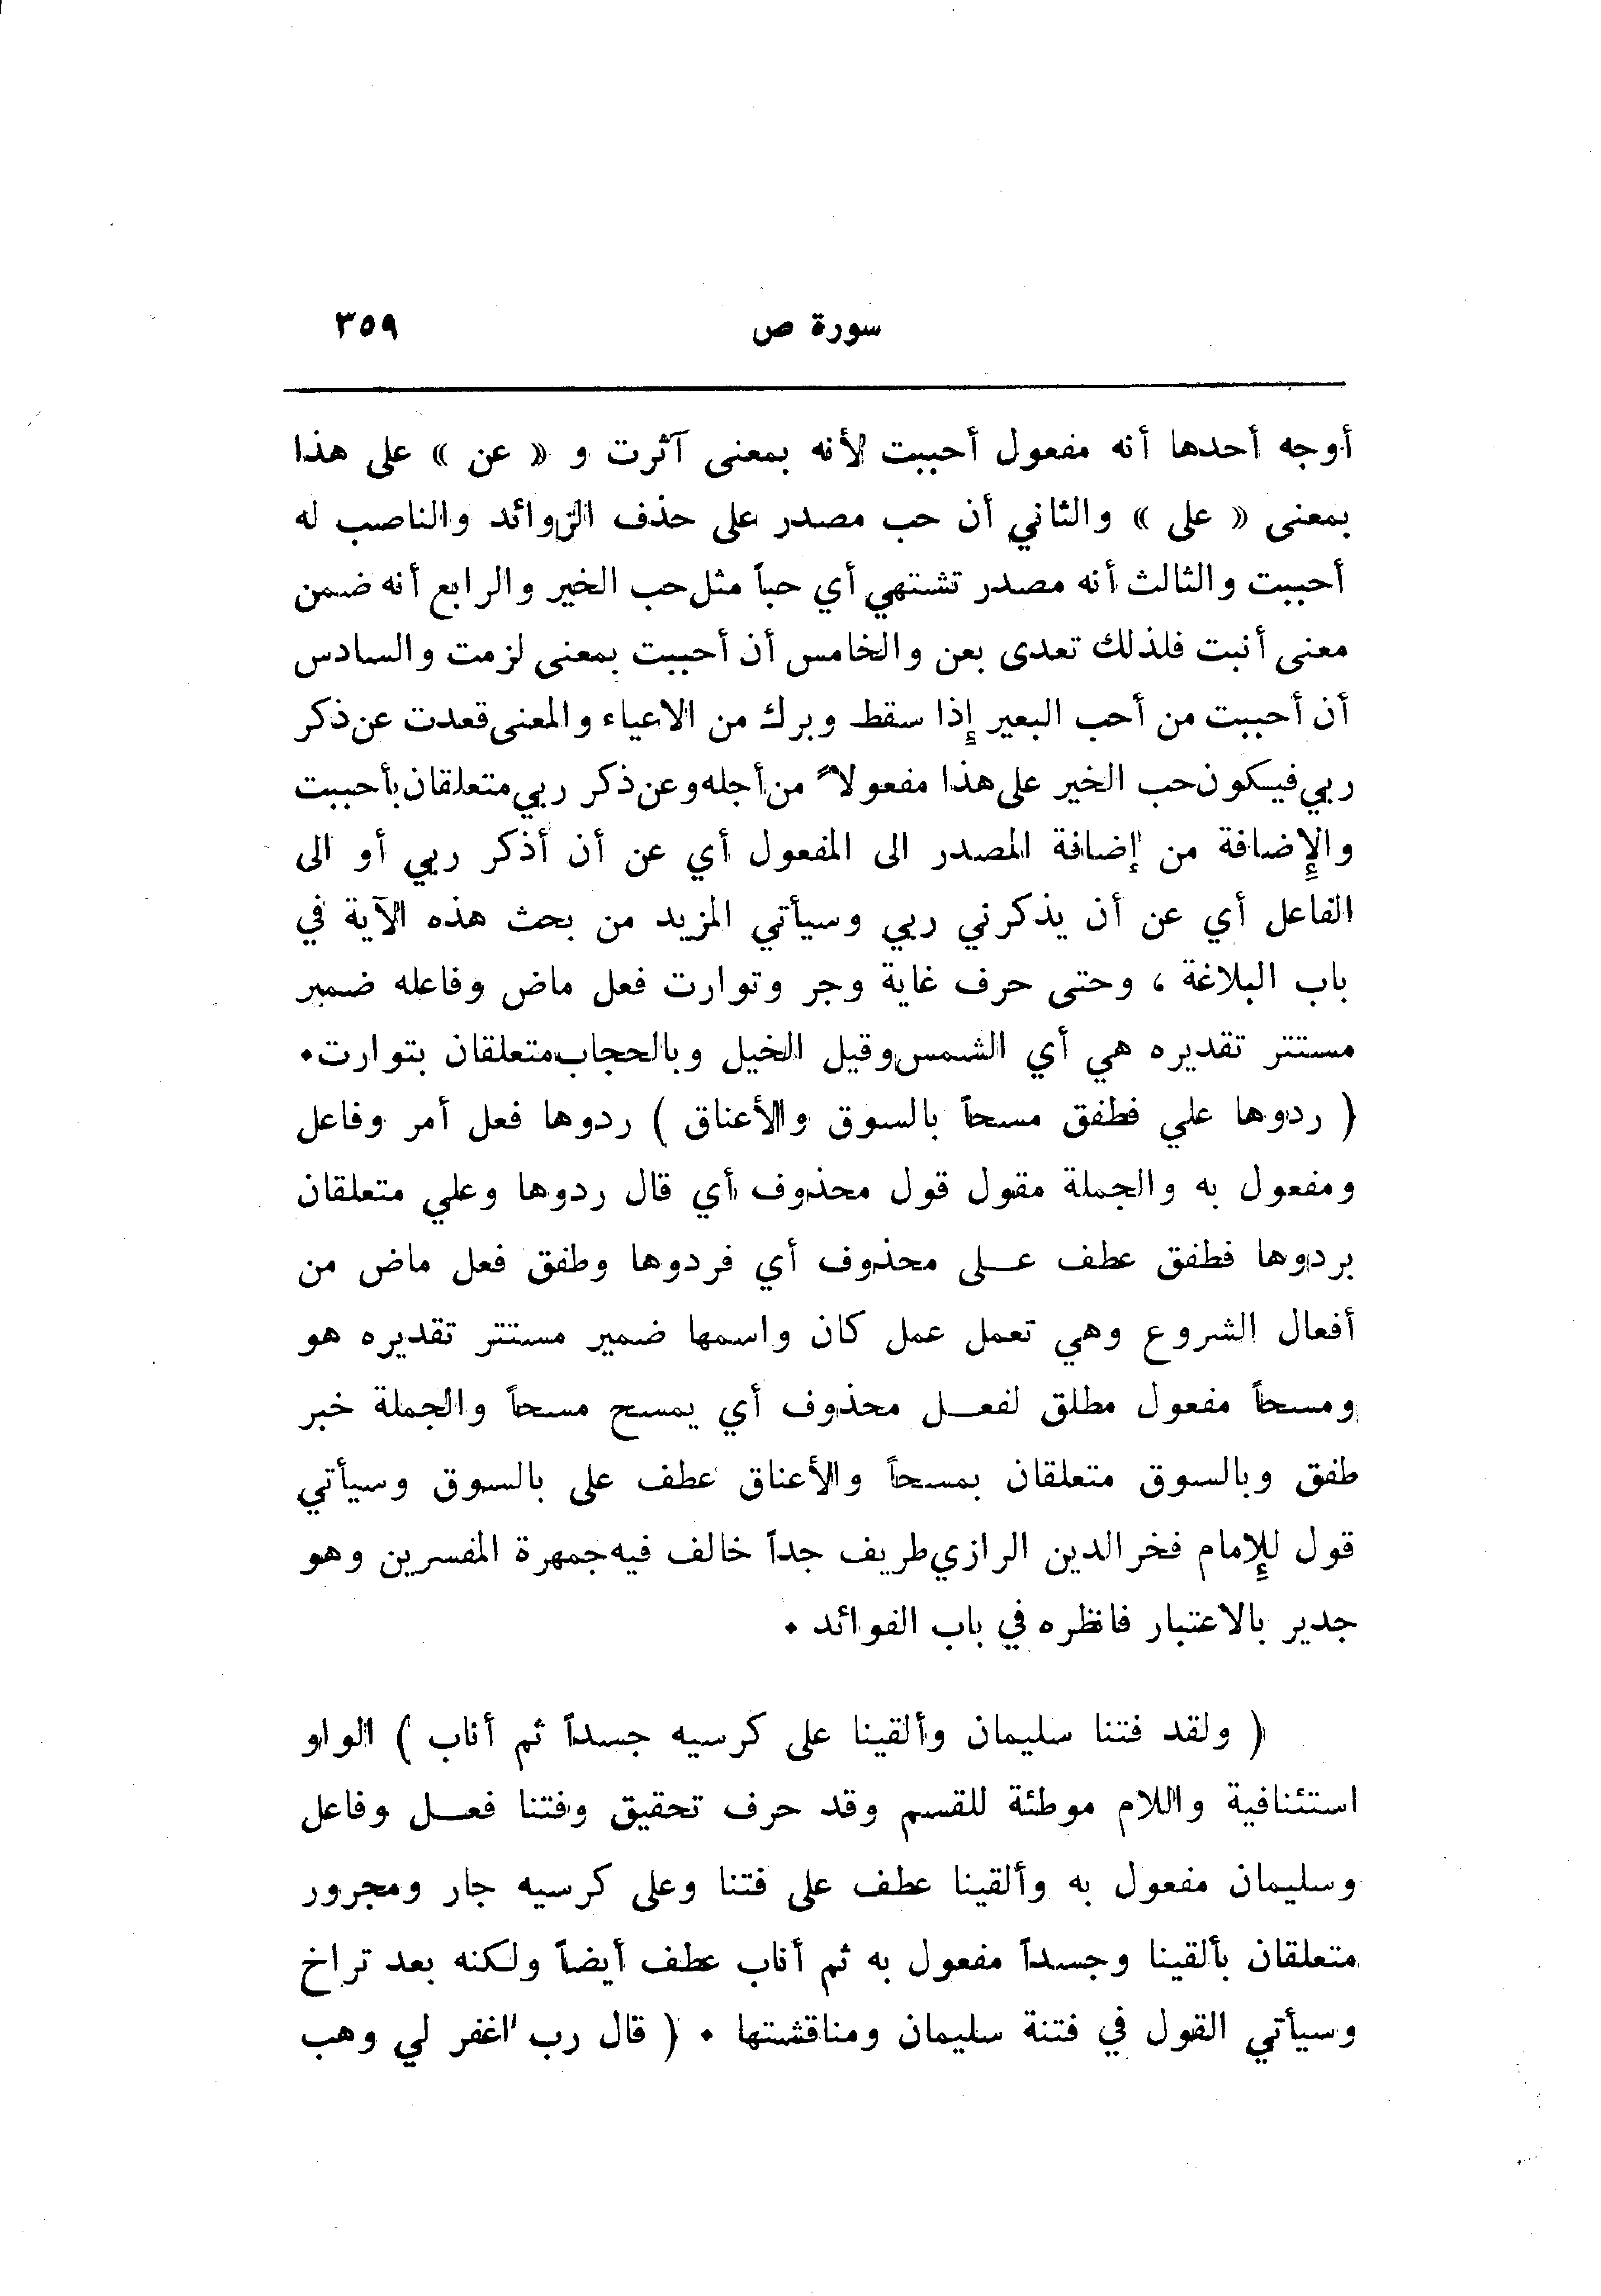 سورة ص ٣٥٩
أوجه أحدها أنه مفعول أحببت لأنه بمعنى آثرت و « عن » على هذا
بمعنى « على » والثاني أن حب مصدر على حذف الزوائد والناصب له
أحببت والثالث أنه مصدر تشتهي أي حباً مثل حب الخير والرابع أنه ضمن
معنى أنبت فلذلك تعدى بعن والخامس أن أحببت بمعنى لزمت والسادس
أن أحببت من أحب البعير إذا سقط وبرك من الاعياء والمعنى قعدت عن ذكر
ربي فيكون حب الخير على هذا مفعولاً من أجله وعن ذكر ربي متعلقان بأحببت
والإضافة من إضافة المصدر الى المفعول أي عن أن أذكر ربي أو الى
الفاعل أي عن أن يذكرني ربي وسيأتي المزيد من بحث هذه الآية في
باب البلاغة ، وحتى حرف غاية وجر وتوارت فعل ماض وفاعله ضمير
مستتر تقديره هي أي الشمس وقيل الخيل وبالحجاب متعلقان بتوارت .
( ردوها علي فطفق مسحاً بالسوق والأعناق ) ردوها فعل أمر وفاعل
ومفعول به والجملة مقول قول محذوف أي قال ردوها وعلي متعلقان
بردوها فطفق عطف عـلى محذوف أي فردوها وطفق فعل ماض من
أفعال الشروع وهي تعمل عمل كان واسمها ضمير مستتر تقديره هو
ومسحاً مفعول مطلق لفعـل محذوف أي يمسح مسحاً والجملة خبر
طفق وبالسوق متعلقان بمسحاً والأعناق عطف على بالسوق وسيأتي
قول للإمام فخر الدين الرازي طريف جداً خالف فيه جمهرة المفسرين وهو
جدير بالاعتبار فانظره في باب الفوائد .
( ولقد فتنا سليمان وألقينا على كرسيه جسداً ثم أناب ) الواو
استئنافية واللام موطئة للقسم وقد حرف تحقيق وفتنا فعـل وفاعل
وسليمان مفعول به وألقينا عطف على فتنا وعلى كرسيه جار ومجرور
متعلقان بألقينا وجسداً مفعول به ثم أناب عطف أيضاً ولكنه بعد تراخ
وسيأتي القول في فتنة سليمان ومناقشتها . ( قال رب اغفر لي وهب